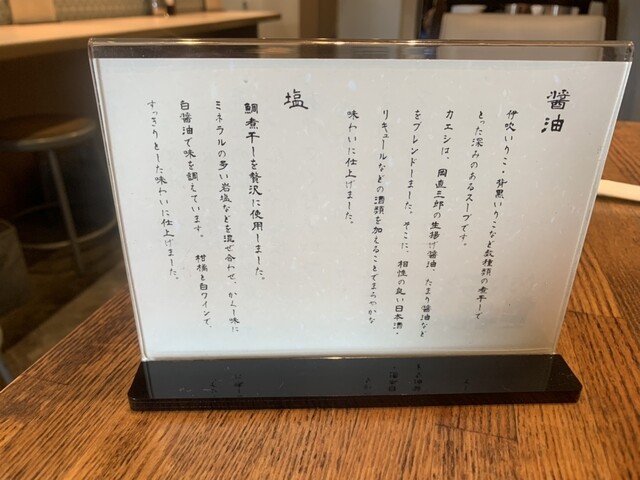 醤油
伊吹いりこ・背黒いりこなど数種類の煮干しで
とった深みのあるスープです。
カエシは、岡直三郎の生揚げ醤油、たまり醤油など
をブレンドしました。そこに、相性の良い日本酒・
リキュールなどの酒類を加えることでまろやかな
味わいに仕上げました。
塩
鯛煮干しを贅沢に使用しました。
ミネラルの多い岩塩などを混ぜ合わせ、かくし味に
白醤油で味を調えています。 柑橘と白ワインで、
すっきりとした味わいに仕上げました。